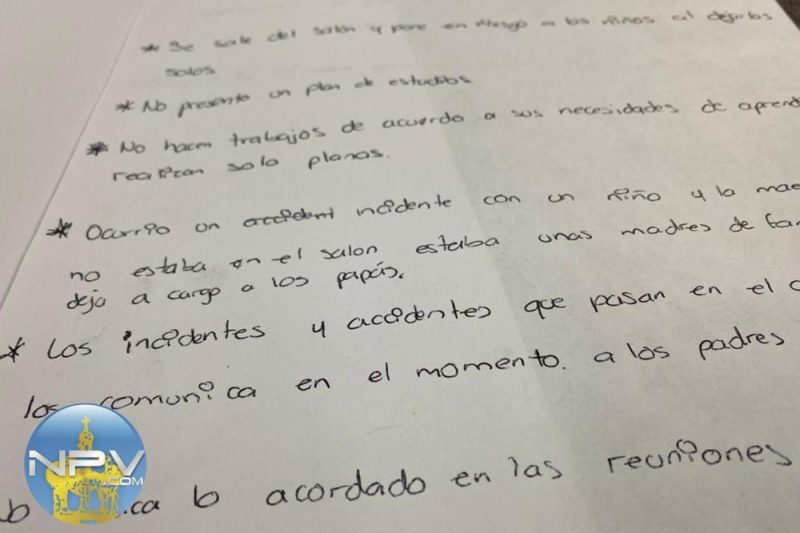 * Se sale del salón y pone en riesgo a los niños al dejarlos
solos
* No presento un plan de estudios
* No hacen trabajos de acuerdo a sus necesidades de aprend
realizan solo planas.
* Ocurrio un incidente con un niño y la mae
no estaba en el salon estaba unas madres de fam
deja a cargo a los papás.
* Los incidentes y accidentes que pasan en el
los comunica en el momento. a los padres
ca lo acordado en las reuniones
NPV
.COM